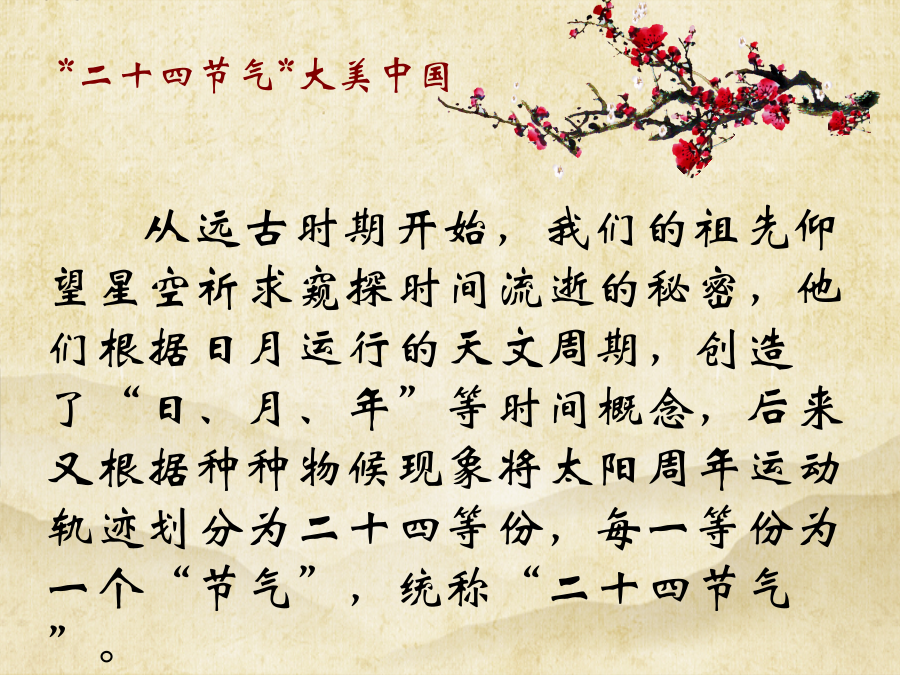 *二十四节气*大美中国
从远古时期开始，我们的祖先仰
望星空祈求窥探时间流逝的秘密，他
们根据日月运行的天文周期，创造
了“日、月、年”等时间概念，后来
又根据种种物候现象将太阳周年运动
轨迹划分为二十四等份，每一等份为
一个“节气”，统称“二十四节气
”。